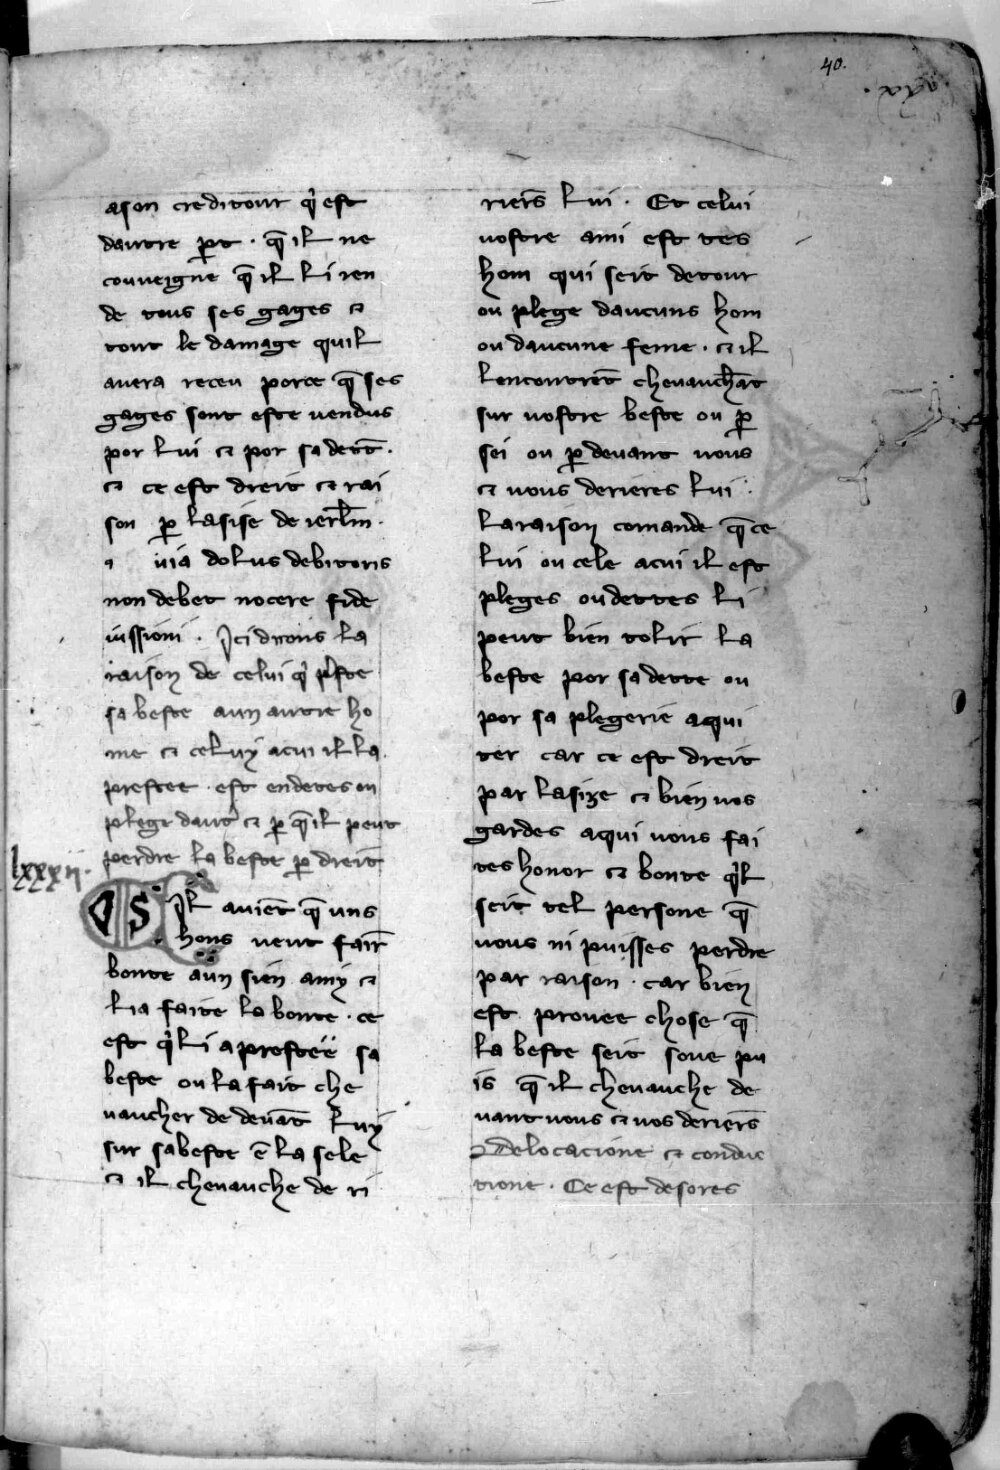 40.
ason creditour qi est
dautre pt . q̄ il ne
couueigne q̄ il li ren
de tous ses gages ⁊
tout le damage quil
auera receu porce q̄ ses
gages sont este vendus
por lui ⁊ por sa dett̄ .
⁊ ce est dreit ⁊ rai
son p̱ lasise de ierl̄m .
uia dolus debitoris
non debet nocere fide
iussioni . Ici dirons la
raison de celui qi pste
sa beste aun autre ho
me ⁊ celuy acui il la
prestee . est endetes ou
plege daut' ⁊ p̱ q̄ il peut
perdre la beste p̱ dreit
lxxxii.
S il auiēt q̄ uns
hons veut fair̄
bonte aun sien amy ⁊
li a faite la bonte . ce
est qi li a prestee sa
beste ou la fait che
uaucher de deuāt luy
sur sa beste ē la sele
⁊ il cheuauche de ri
riers̄ lui . Et celui
vostre ami est tes
hom qui seit detour
ou plege daucuns hom
ou daucune feme . ⁊ il
lencontrēt cheuauchāt
sur vostre beste ou p̱
sei ou p̱ deuant vous
⁊ vous derieres lui .
La raison comande q̄ ce
lui ou cele acui il est
pleges ou dettes li
peut bien tolir la
beste por sa dette ou
por sa plegerie aqui
ter car ce est dreit
par lasize ⁊ bien vos
gardes aqui vous fai
tes honor ⁊ bonte qil
seit tel persone q̄
vous ni puisses perdre
par raison . car bien
est prouee chose q̄
la beste seit soue pu
is q̄ il cheuauche de
uant vous ⁊ vos deriers̄
De locacione ⁊ conduc
tione . Ce est desores